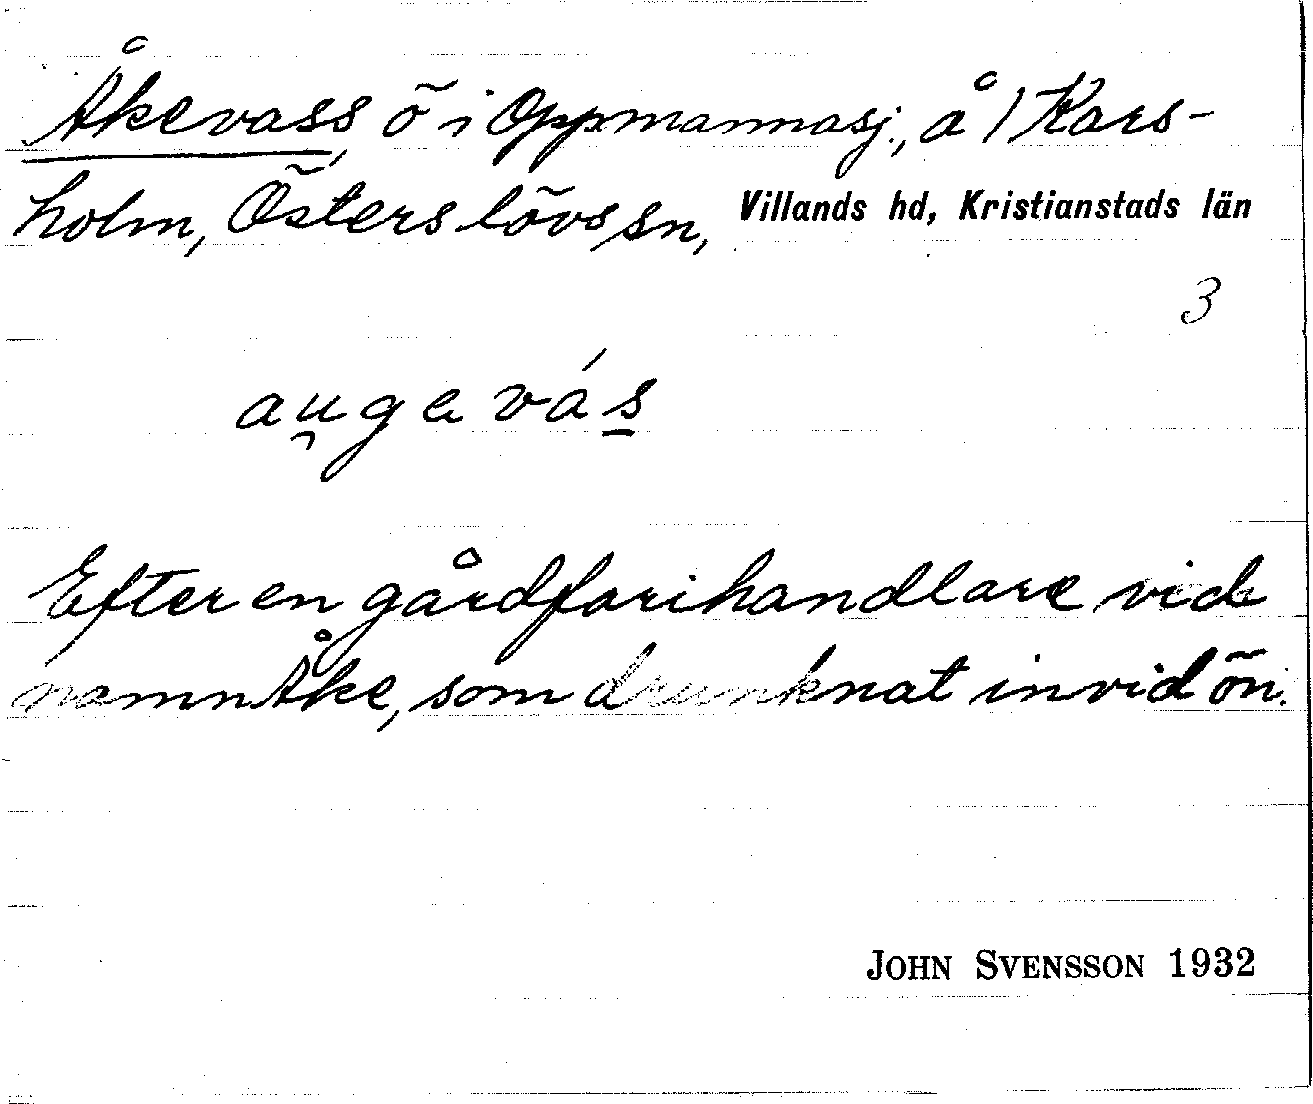 Åkevass, ö i Oppmannasj., å 1 Kars-
holm, Österslövs sn, Villands hd, Kristianstads län
3
au̯gavás̲
Efter en gårdfarihandlare vid
namn Åke, som drunknat invid ön.
JOHN SVENSSON 1932